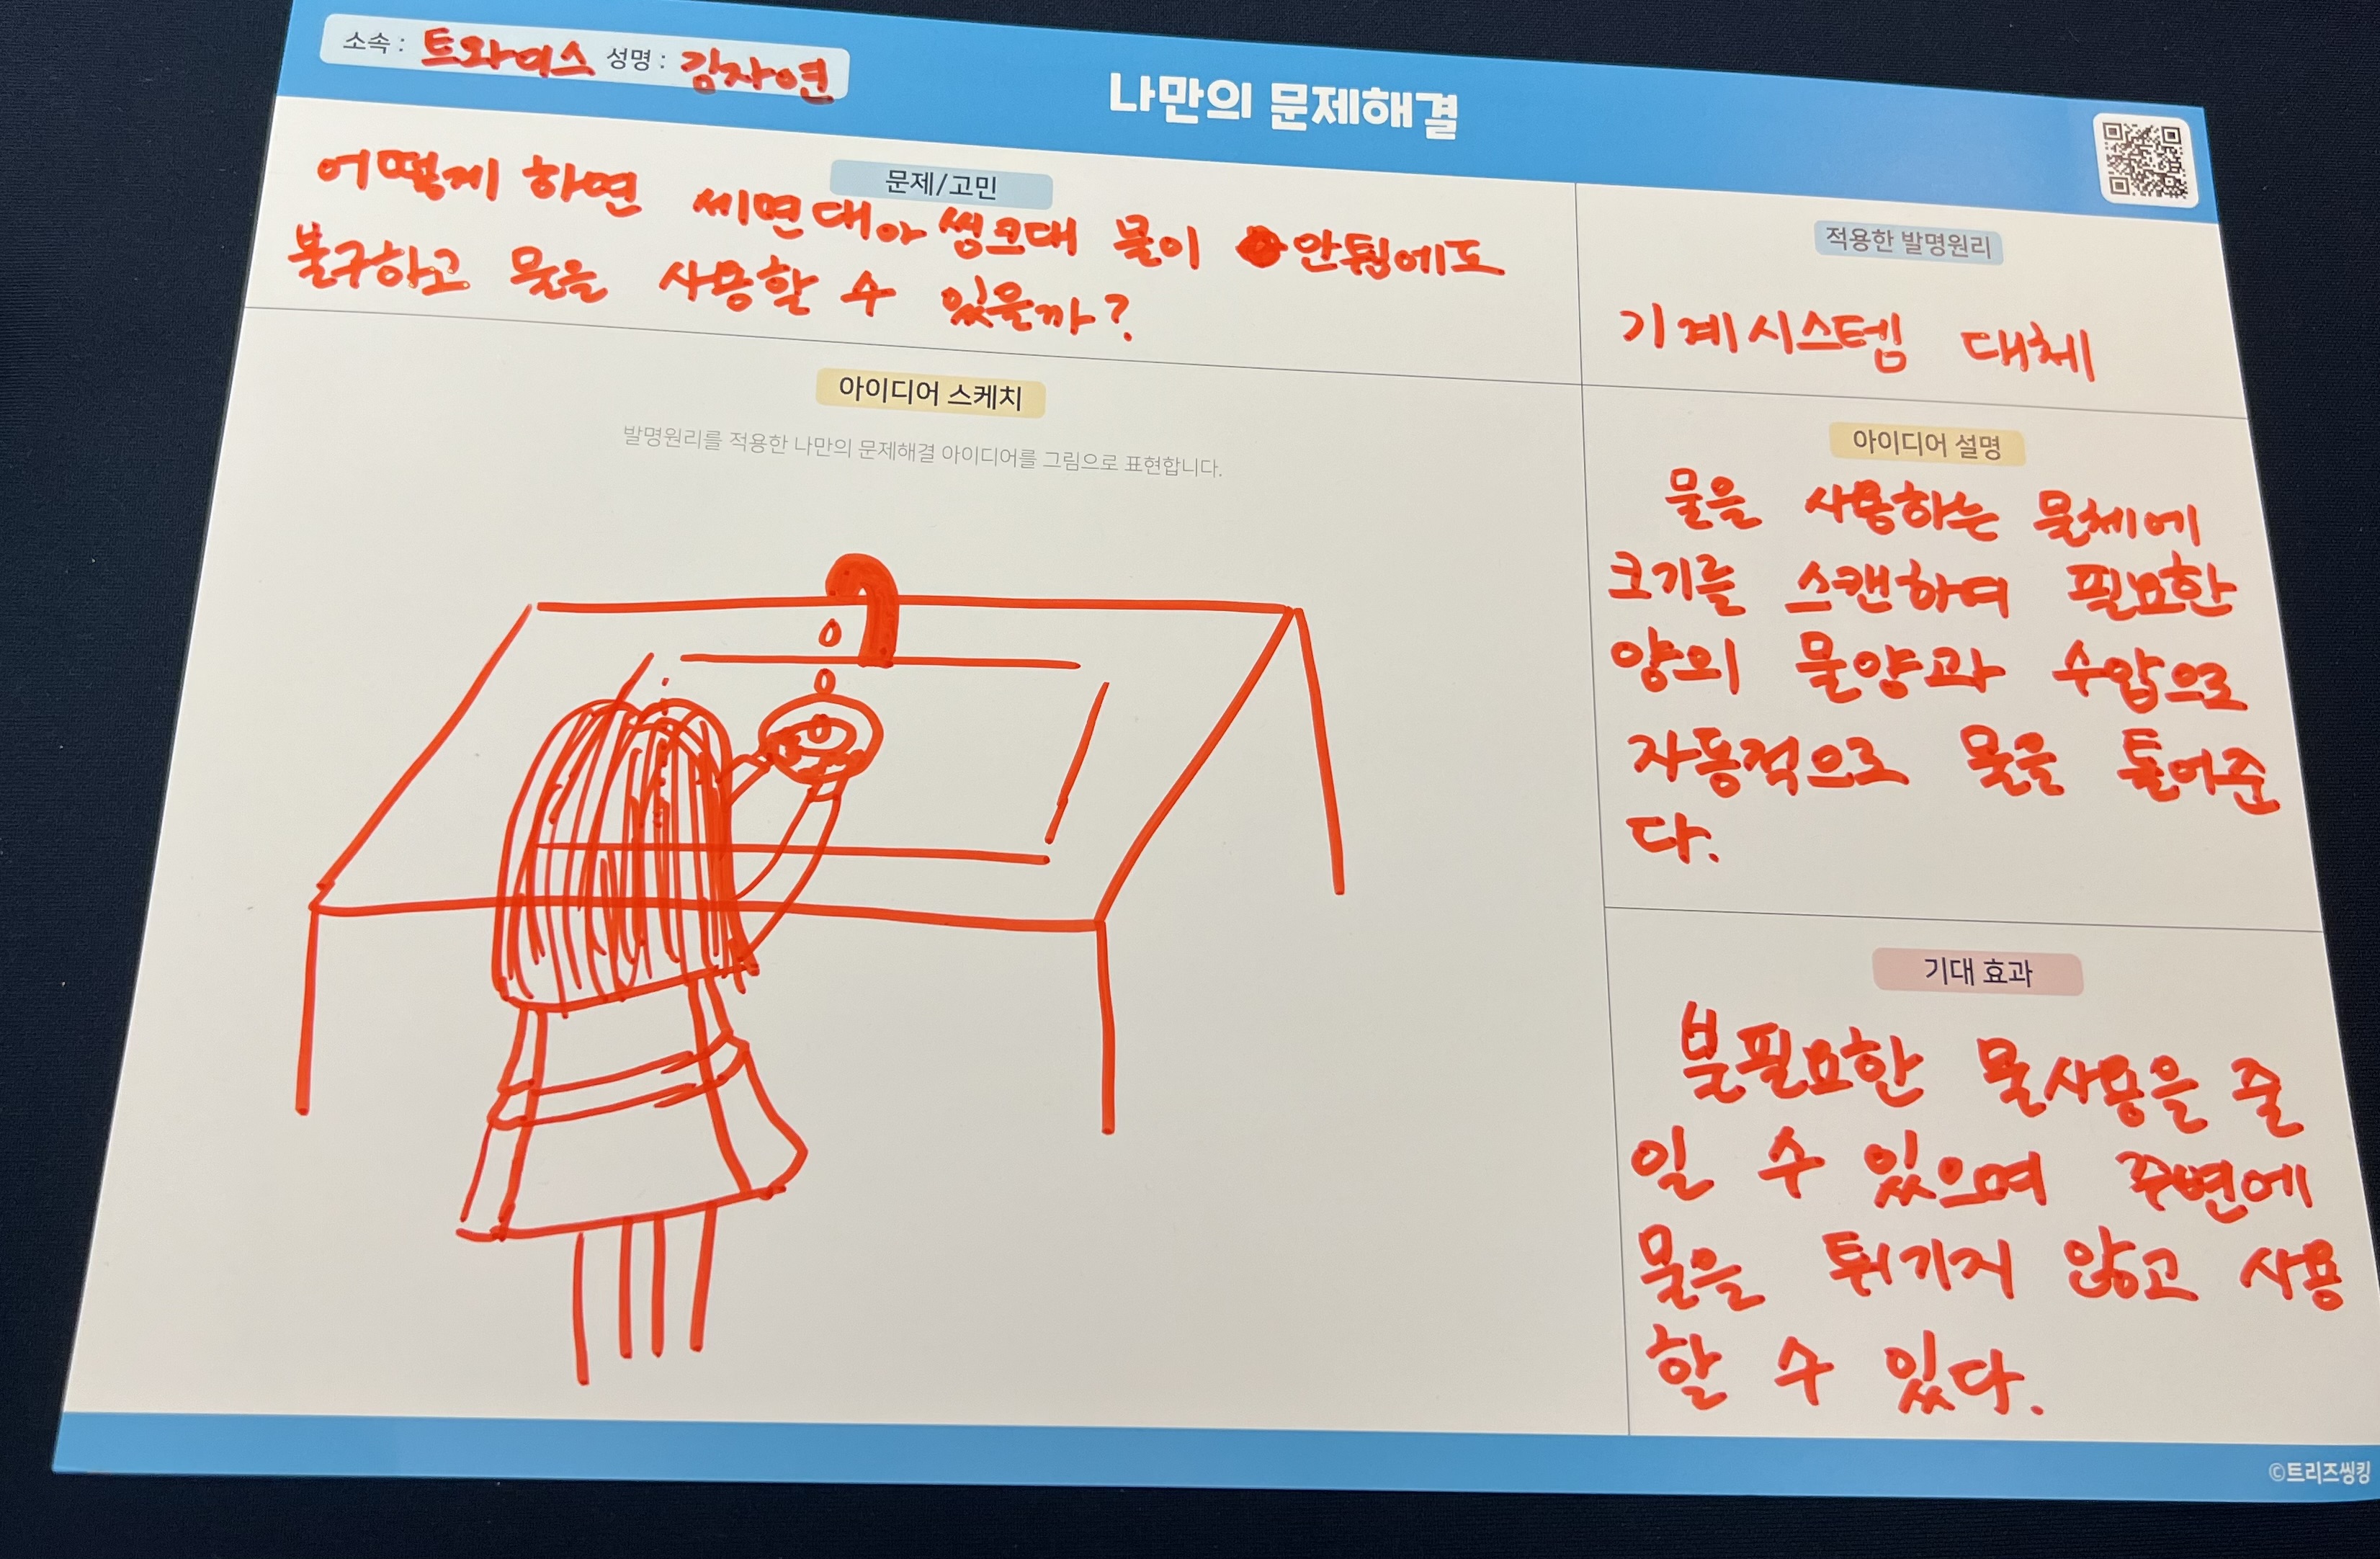 소속 : 트와이스 성명 : 김자연
나만의 문제해결
문제/고민
어떻게 하면 세면대아 씽크대 물이 안튐에도
불구하고 물을 사용할 수 있을까?
적용한 발명원리
기계시스템 대체
아이디어 스케치
발명원리를 적용한 나만의 문제해결 아이디어를 그림으로 표현합니다.
아이디어 설명
물을 사용하는 물체에
크기를 스캔하여 필요한
양의 물양과 수압으로
자동적으로 물을 틀어준
다.
기대 효과
불필요한 물사용을 줄
일 수 있으며 주변에
물을 튀기지 않고 사용
할 수 있다.
©트리즈씽킹